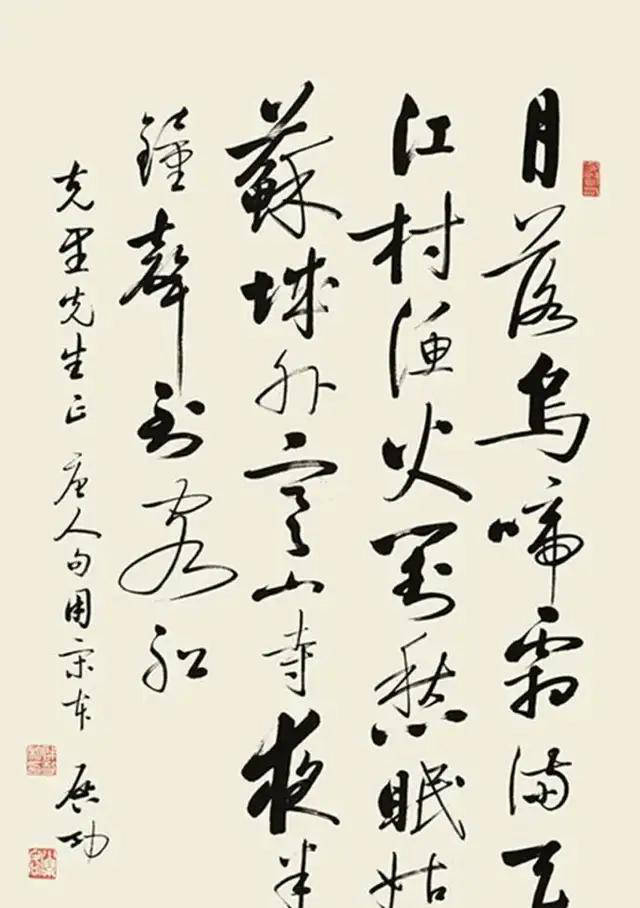 月落烏啼霜滿天
江村漁火對愁眠姑
蘇城外寒山寺夜半
鐘聲到客船
克里先生正 唐人句用宋本 啟功